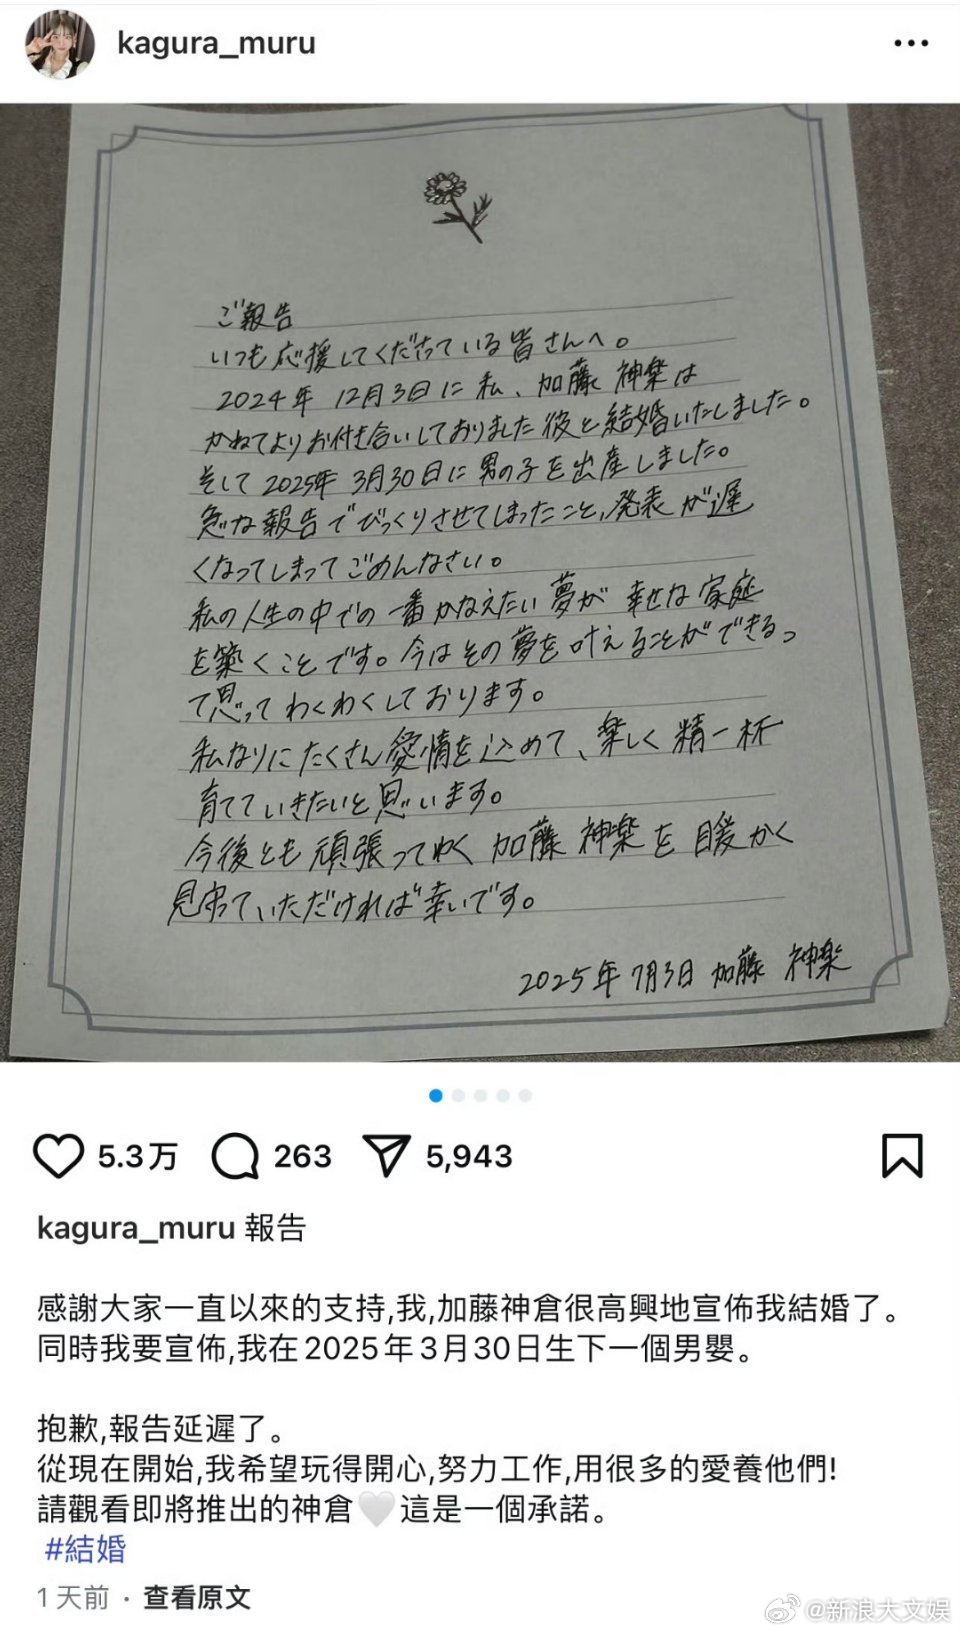 kagura_muru
ご報告
いつも応援してくださっている皆さんへ。
2024年 12月3日に私、加藤 神楽は
かねてよりお付き合いしておりました彼と結婚いたしました。
そして 2025年 3月30日に男の子を出産しました。
急な報告でびっくりさせてしまったこと、発表が遅
くなってしまってごめんなさい。
私の人生の中での一番かなえたい夢が 幸せな家庭
を築くことです。今はその夢を叶えることができるっ
て思ってわくわくしております。
私なりにたくさん愛情を込めて、楽しく精一杯
育てていきたいと思います。
今後とも頑張ってゆく 加藤 神楽を 暖かく
見守っていただければ幸いです。
2025年 7月3日 加藤 神楽
5.3万 263 5,943
kagura_muru 報告
感謝大家一直以來的支持,我,加藤神倉很高興地宣佈我結婚了。
同時我要宣佈,我在2025年3月30日生下一個男嬰。
抱歉,報告延遲了。
從現在開始,我希望玩得開心,努力工作,用很多的愛養他們!
請觀看即將推出的神倉🤍這是一個承諾。
#結婚
1天前 · 查看原文
@新浪大文娱